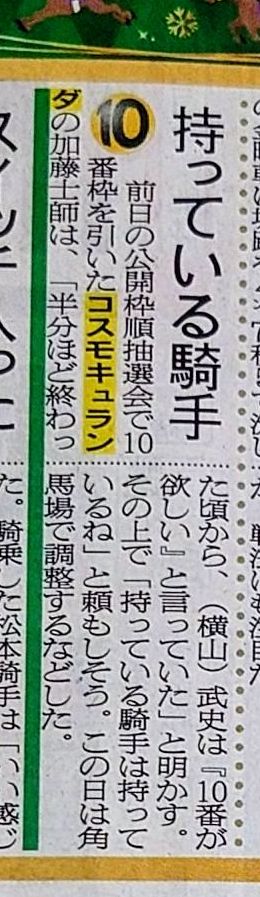 持っている騎手
⑩
前日の公開枠順抽選会で10
番枠を引いたコスモキュラン
ダの加藤士師は、「半分ほど終わっ
た頃から、（横山）武史は『10番が
欲しい』と言っていた」と明かす。
その上で「持っている騎手は持って
いるね」と頼もしそう。この日は角
馬場で調整するなどした。
た。騎乗した松本騎手は「いい感じ